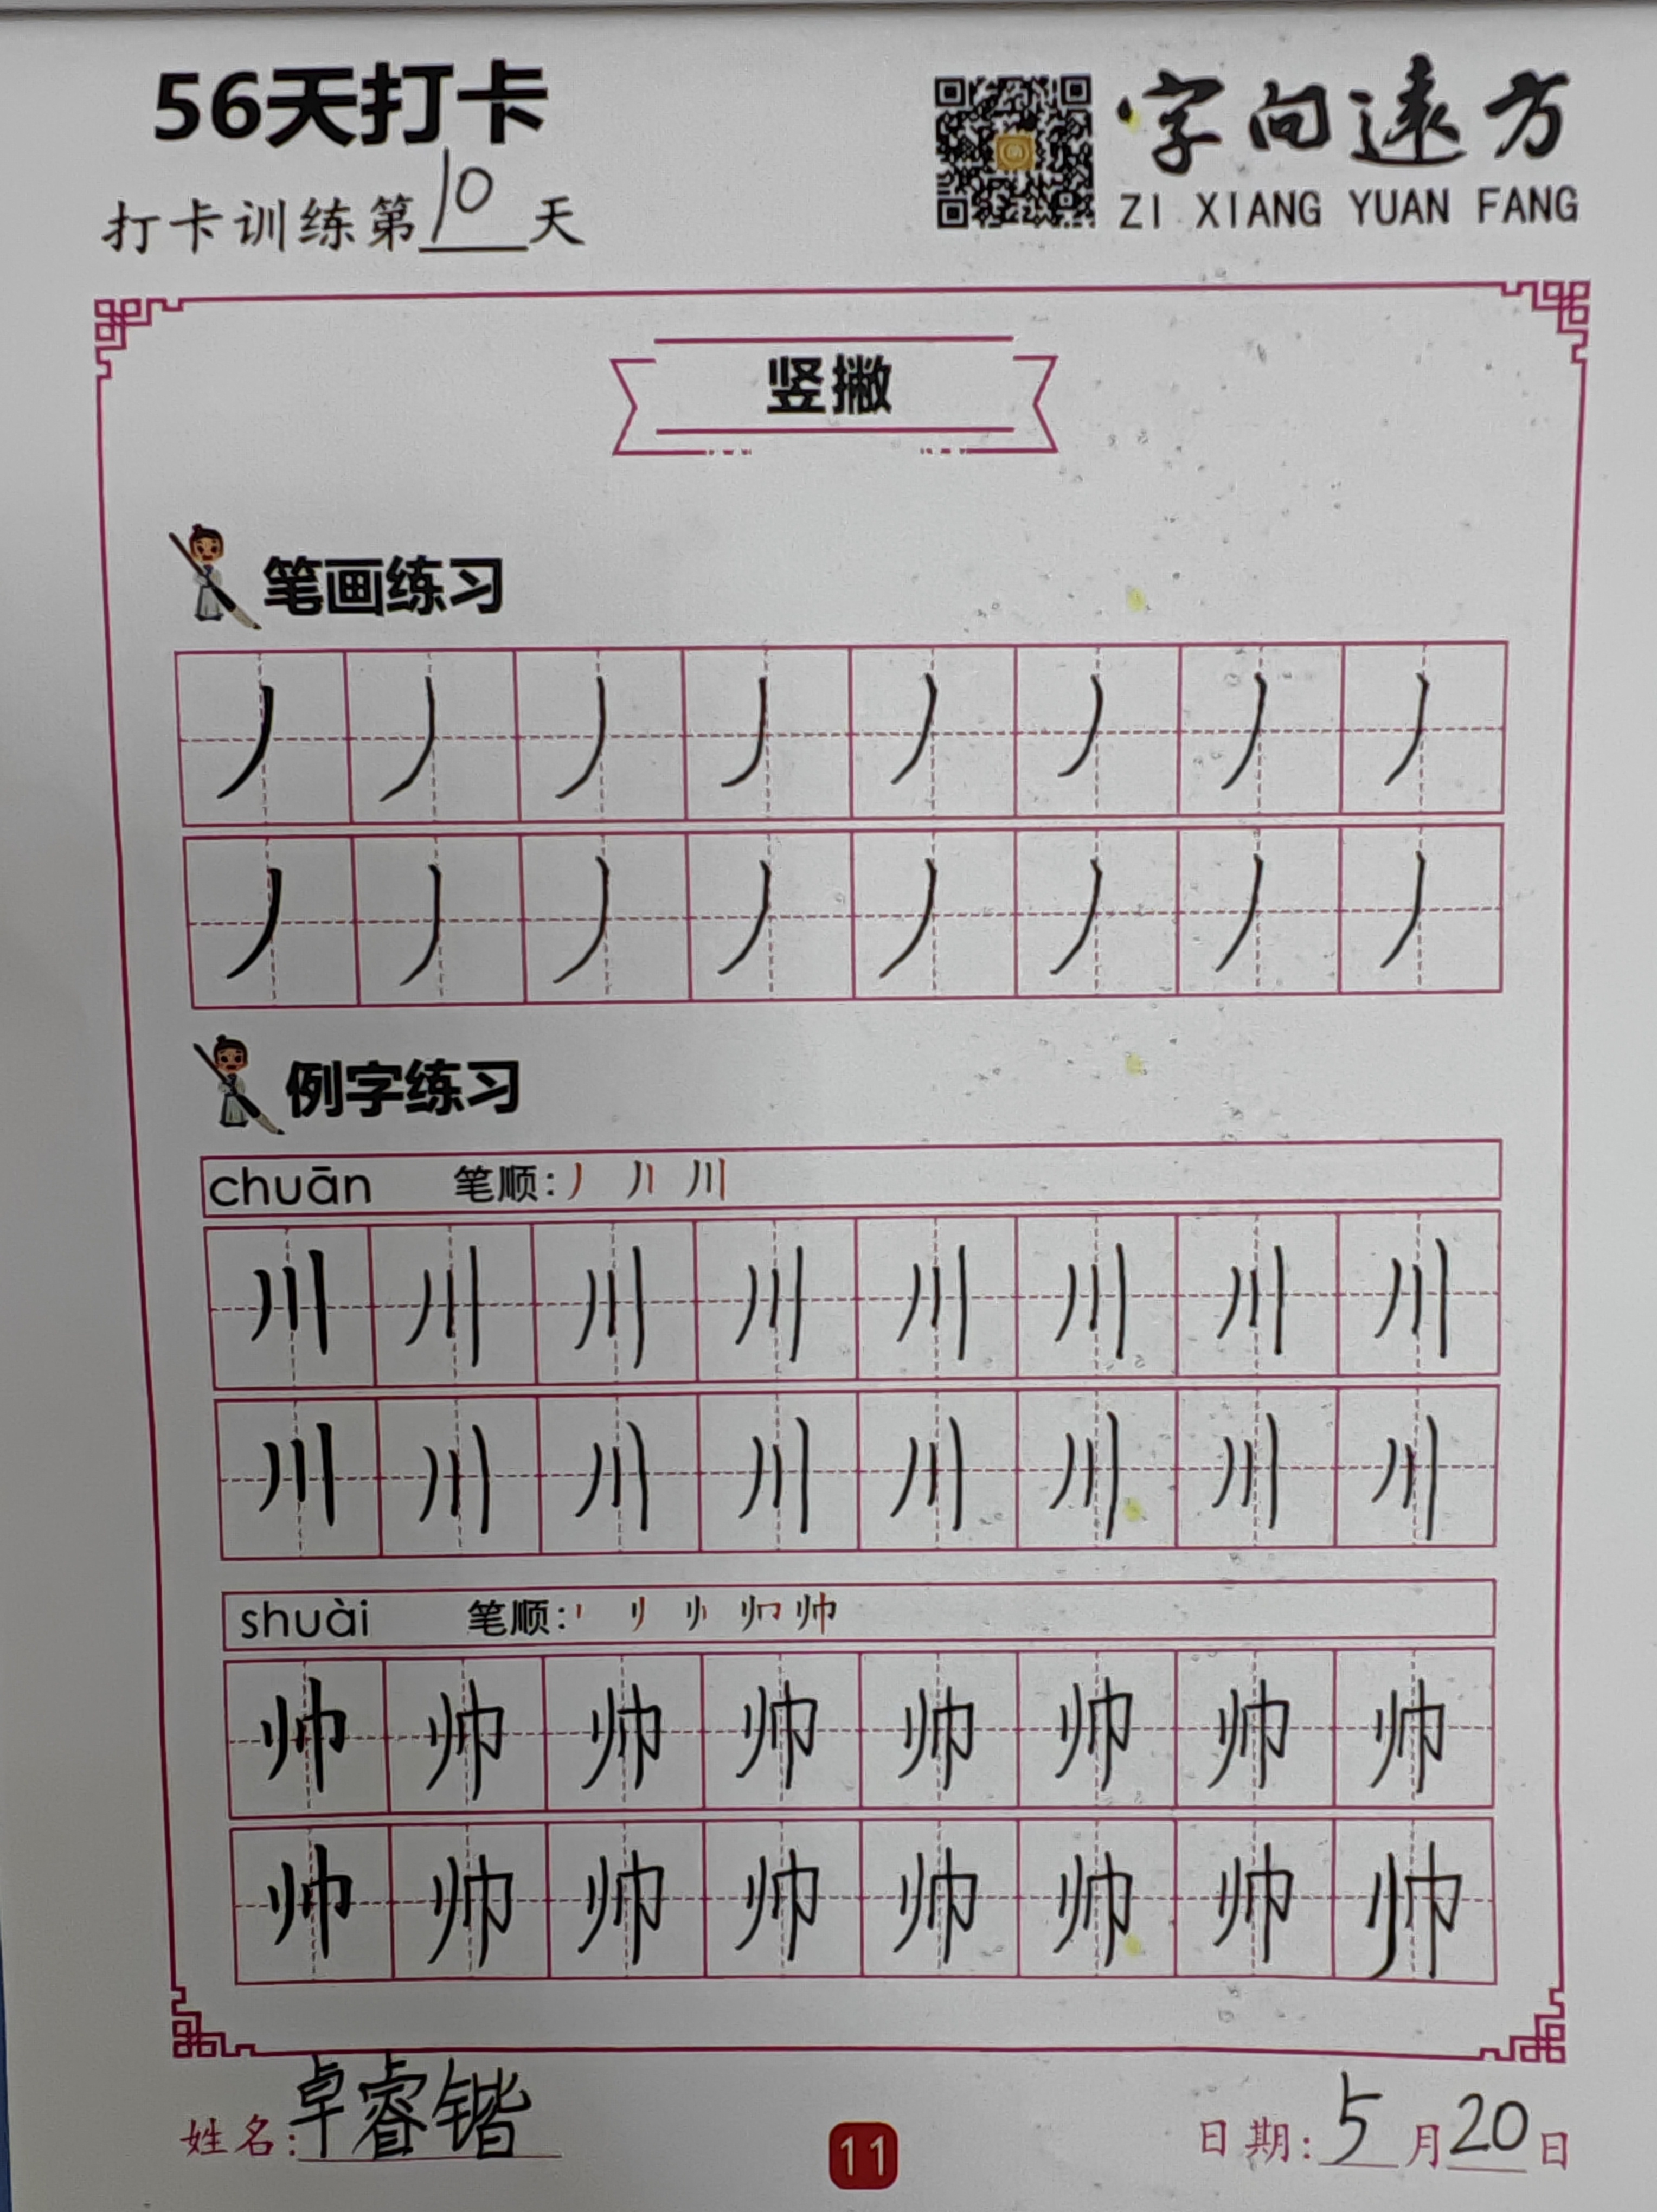 56天打卡
字向遠方
ZI XIANG YUAN FANG
打卡训练第10天
竖撇
笔画练习
丿 丿 丿 丿 丿 丿 丿 丿
丿 丿 丿 丿 丿 丿 丿 丿
例字练习
chuān 笔顺: 丿 丿丨 川
川 川 川 川 川 川 川 川
川 川 川 川 川 川 川 川
shuài 笔顺: 丨 刂 帅
帅 帅 帅 帅 帅 帅 帅 帅
帅 帅 帅 帅 帅 帅 帅 帅
姓名: 卓睿锴
11
日期: 5月20日